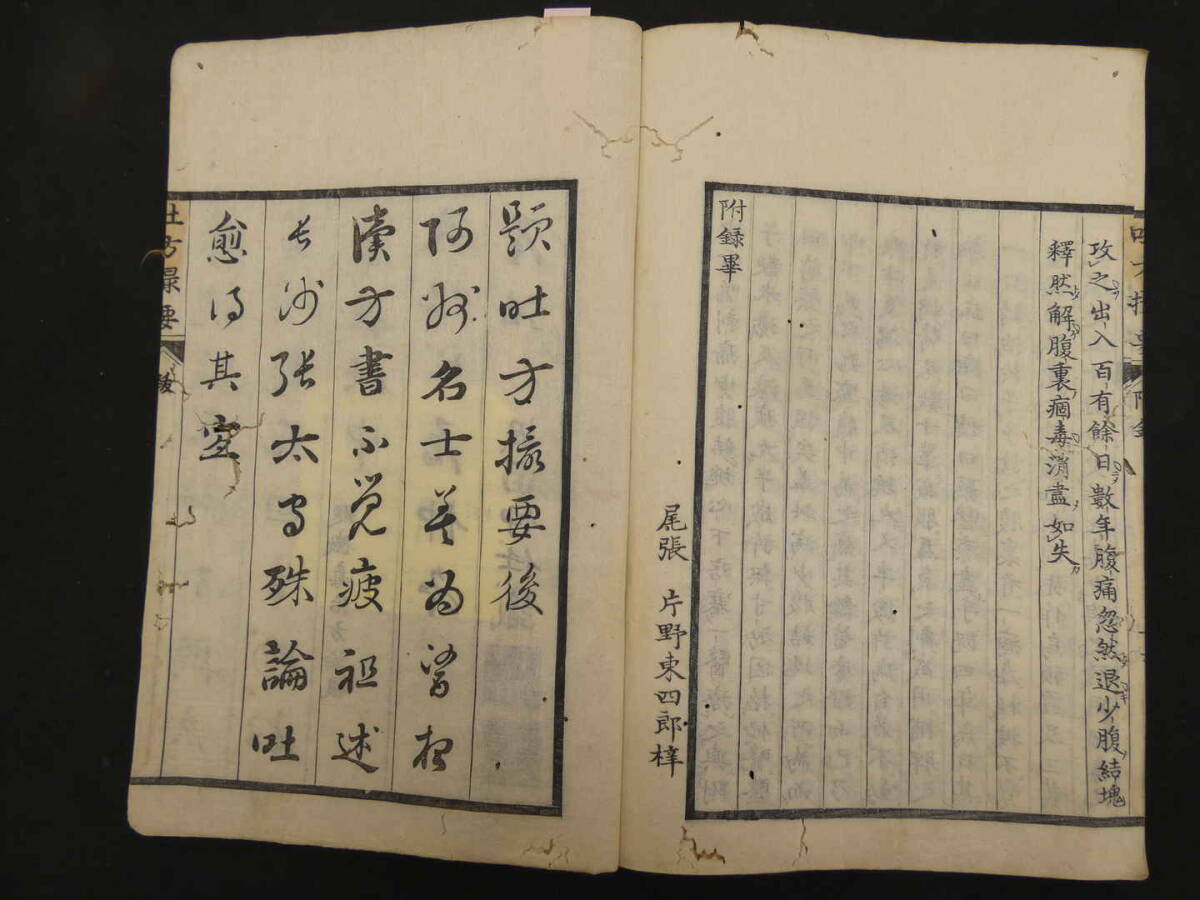 吐方撮要 附錄
攻之出入百有餘日數年腹痛忽然退少腹結塊
釋然解腹裏痼毒消盡如失
附錄畢
尾張 片野東四郎梓
題吐方撮要後
阿州名士為醫夜
讀方書不覺疲祖述
長沙張太守殊論吐
愈得其宜
吐方撮要 跋